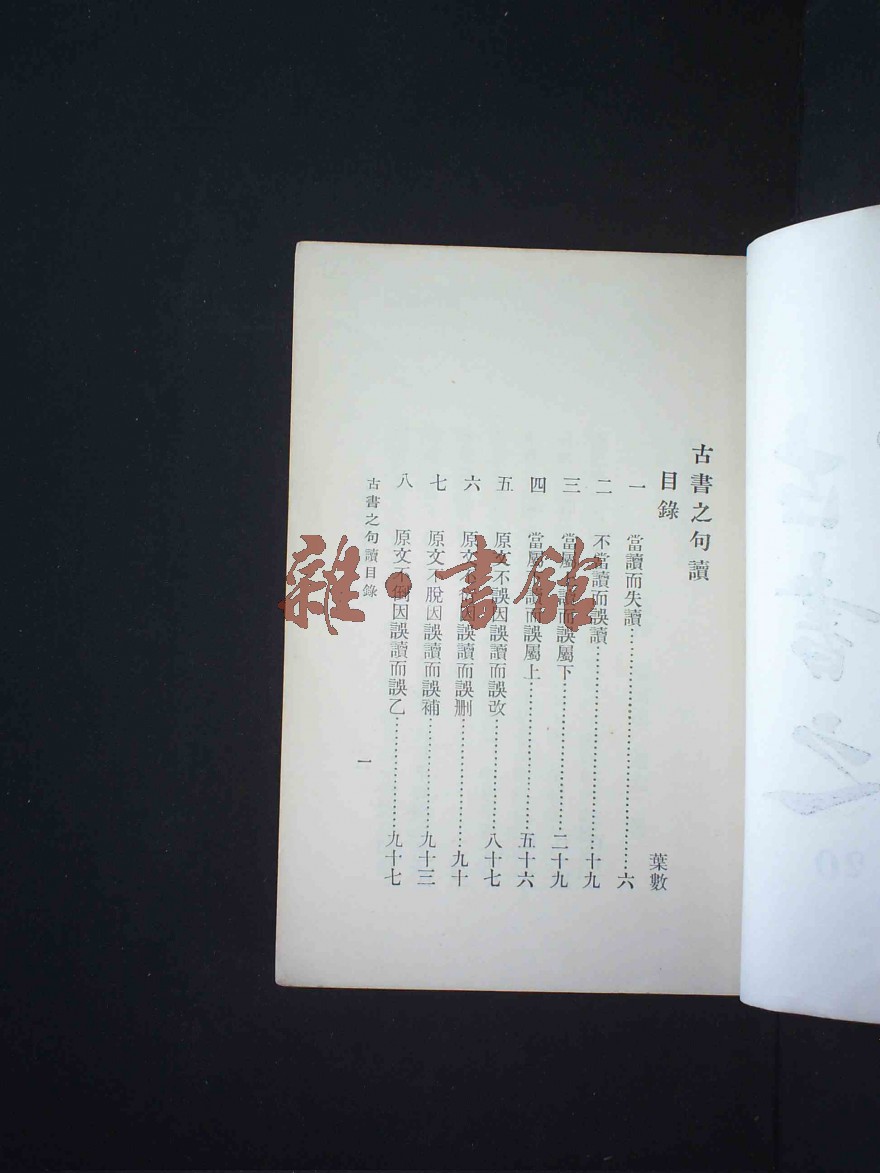 古書之句讀
目錄
葉數
一 當讀而失讀……六
二 不當讀而誤讀……十九
三 當屬上讀而誤屬下……二十九
四 當屬下讀而誤屬上……五十六
五 原文不誤因誤讀而誤改……八十七
六 原文不衍因誤讀而誤刪……九十
七 原文不脫因誤讀而誤補……九十三
八 原文不倒因誤讀而誤乙……九十七
古書之句讀目錄
一
雜·書館
古書之
20